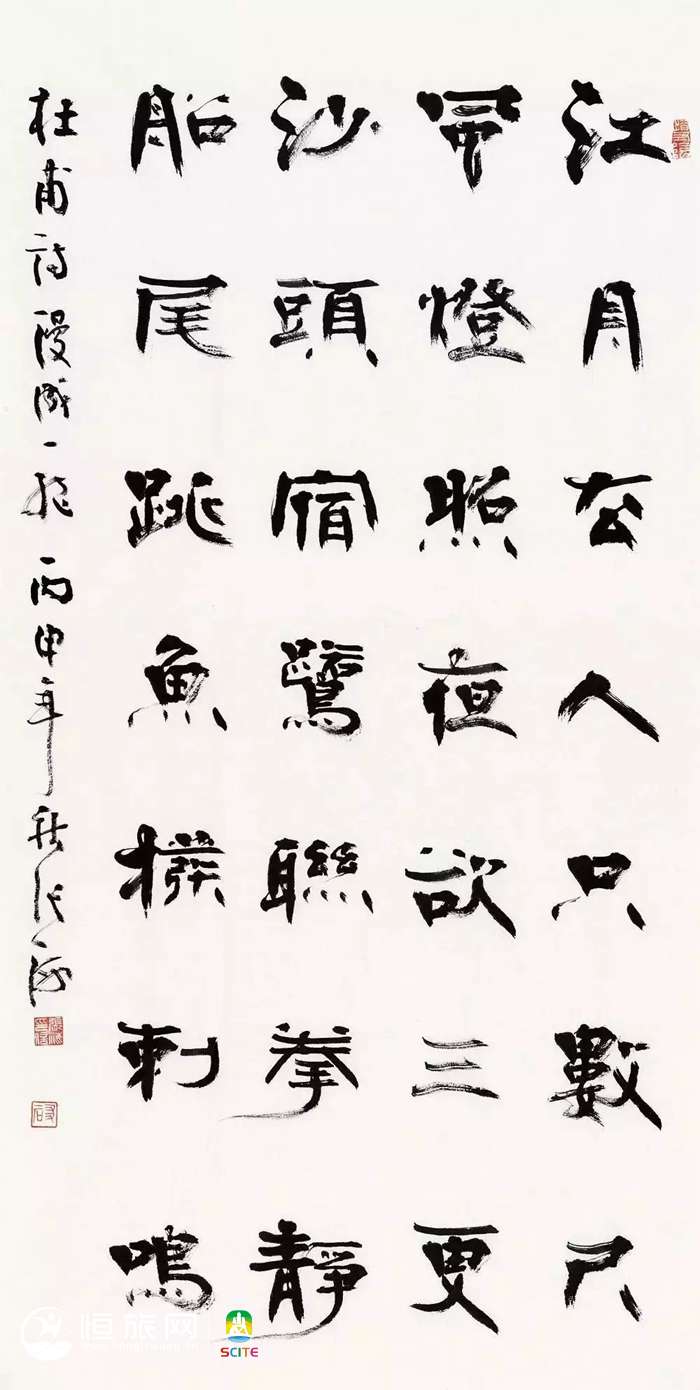 江月去人只數尺
風燈照夜欲三更
沙頭宿鷺聯拳靜
船尾跳魚撥剌鳴
杜甫詩漫成一絕 丙申年秋張海
恒旅网
SCITE